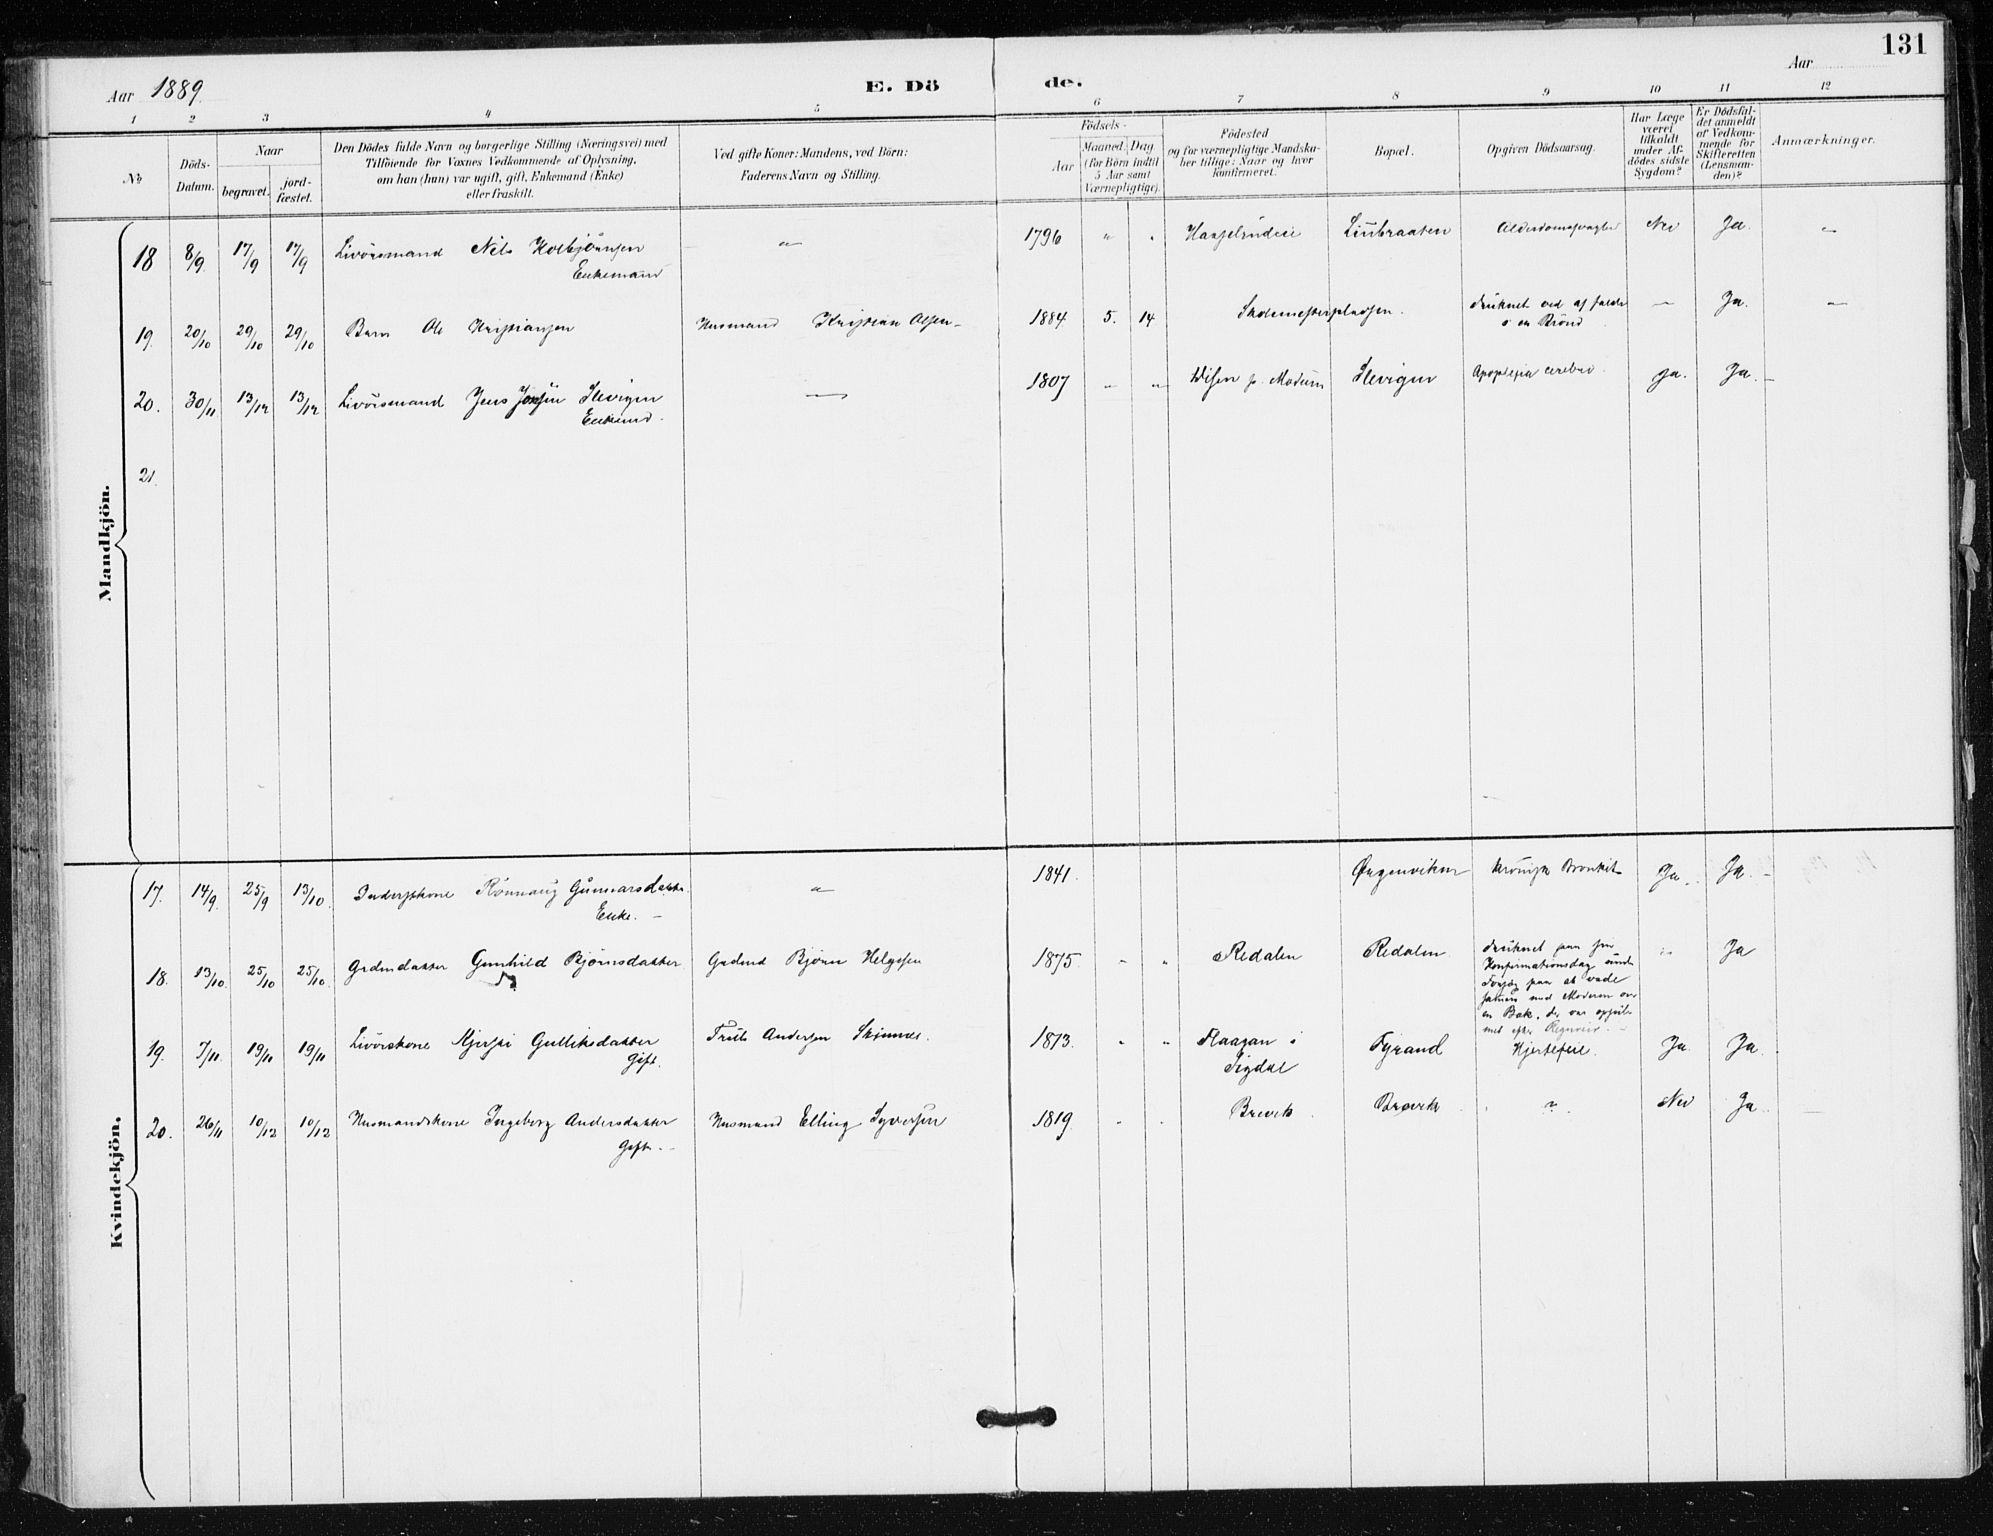 131
Aar 1889.
E. Dö de.
Aar
1 2 3 4 5 6 7 8 9 10 11 12
No
Döds-
Datum.
Naar
begravet.
jord-
fæstet.
Den Dödes fulde Navn og borgerlige Stilling (Næringsvei) med
Tilföiende for Voxnes Vedkommende af Oplysning,
om han (hun) var ugift, gift, Enkemand (Enke)
eller fraskilt.
Ved gifte Koner: Mandens, ved Börn:
Faderens Navn og Stilling.
Födsels-
Aar
Maaned. Dag.
(for Börn indtil
5 Aar samt
Værnepligtige).
Födested
og for værnepligtige Mandska-
ber tillige: Naar og hvor
konfirmeret.
Bopæl.
Opgiven Dödsaarsag.
Har Læge
været
tilkaldt
under Af-
dödes sidste
Sygdom?
Er Dödsfal-
det anmeldt
af Vedkom-
mende for
Skifteretten
(Lensman-
den)?
Anmærkninger.
Mandkjön.
18 8/9. 17/9 17/9 Livörsmand Nils Kolbjörnsen - " - 1796 " " Linbraaten Alderdomssvaghed Nei Ja. -
Enkemand
19. 20/10 29/10 29/10 Barn Ole Kristiansen Husmand Kristian Olsen - 1884 5. 14 Skolemesterpladsen. druknet ved at falde — Ja. —
i en Brönd
20. 30/11 13/12 13/12 Livörsmand Jens Jonsen Slevigen — 1807 " " p. Modum Slevigen Apoplexia cerebri. Ja. Ja. -
Enkemd.
21.
Kvindekjön.
17. 14/9. 25/9 13/10. Inderstkone Rönnaug Gunnarsdatter " 1841. kronisk Bronkit Ja. Ja. -
Enke. -
18. 13/10. 25/10 25/10. Grdmdatter Gunhild Björnsdatter Grdmd Bjørn Helgesen 1875. " " Redalen Redalen druknet paa sin " Ja
Konfirmationsdag under
Forsøg paa at vade
sammen med Moderen over
en Bæk, der var opsvul-
met efter Regnveir. -
19. 7/11. 19/11 19/11 Livörskone Gulliksdatter Truls Andersen 1813. " " Flaagan i Tyrand Hjertefeil. Ja. Ja.
Gift. Sigdal
20. 26/11 10/12 10/12 Husmandskone Ingeborg Andersdatter Husmand Elling Syversen 1819. " " Brevik. Brevik. ? Nei Ja.
Gift. -